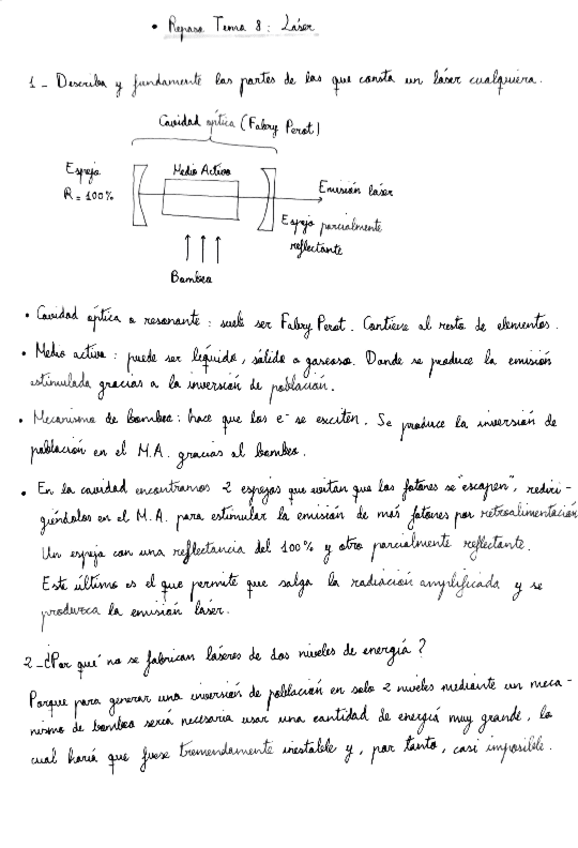 • Repaso Tema 8: Láser
1 - Describa y fundamente las partes de las que consta un láser cualquiera.
Cavidad óptica (Fabry Perot)
Espejo
R = 100%
Medio Activo
Emisión láser
Espejo parcialmente
reflectante
Bombeo
• Cavidad óptica o resonante: suele ser Fabry Perot. Contiene al resto de elementos.
• Medio activo: puede ser líquido, sólido o gaseoso. Donde se produce la emisión
estimulada gracias a la inversión de población.
• Mecanismo de bombeo: hace que los e⁻ se exciten. Se produce la inversión de
población en el M.A. gracias al bombeo.
• En la cavidad encontramos 2 espejos que evitan que los fotones se "escapen", rediri-
giéndolos en el M.A. para estimular la emisión de más fotones por retroalimentación
Un espejo con una reflectancia del 100% y otro parcialmente reflectante.
Este último es el que permite que salga la radiación amplificada y se
produzca la emisión láser.
2 - ¿Por qué no se fabrican láseres de dos niveles de energía?
Porque para generar una inversión de población en solo 2 niveles mediante un meca-
nismo de bombeo sería necesario usar una cantidad de energía muy grande, lo
cual haría que fuese tremendamente inestable y, por tanto, casi imposible.